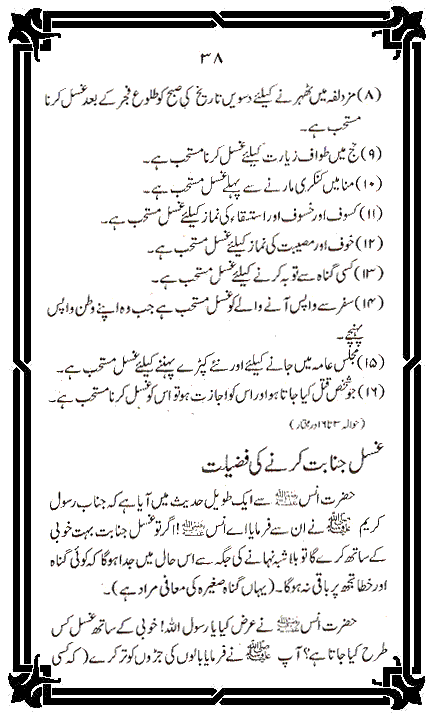 ۳۸
(۸) مزدلفہ میں ٹھہرنے کیلئے دسویں تاریخ کی صبح کو طلوع فجر کے بعد غسل کرنا
مستحب ہے۔
(۹) حج میں طواف زیارت کیلئے غسل کرنا مستحب ہے۔
(۱۰) منا میں کنکری مارنے سے پہلے غسل مستحب ہے۔
(۱۱) کسوف اور خسوف اور استسقاء کی نماز کیلئے غسل مستحب ہے۔
(۱۲) خوف اور مصیبت کی نماز کیلئے غسل مستحب ہے۔
(۱۳) کسی گناہ سے توبہ کرنے کیلئے غسل مستحب ہے۔
(۱۴) سفر سے واپس آنے والے کو غسل مستحب ہے جب وہ اپنے وطن واپس
پہنچے۔
(۱۵) مجلس عامہ میں جانے کیلئے اور نئے کپڑے پہننے کیلئے غسل مستحب ہے۔
(۱۶) جو شخص قتل کیا جاتا ہو اور اس کو اجازت ہو تو اس کو غسل کرنا مستحب ہے۔
(حوالہ ۳ تا ۱۶ در مختار)
غسل جنابت کرنے کی فضیلت
حضرت انس ﷺ سے ایک طویل حدیث میں آیا ہے کہ جناب رسول
کریم ﷺ نے ان سے فرمایا اے انس ﷺ! اگر تو غسل جنابت بہت خوبی
کے ساتھ کرے گا تو بلا شبہ نہانے کی جگہ سے اس حال میں جدا ہوگا کہ کوئی گناہ
اور خطا تجھ پر باقی نہ ہوگا۔ (یہاں گناہ صغیرہ کی معافی مراد ہے)۔
حضرت انس ﷺ نے عرض کیا یا رسول اللہ! خوبی کے ساتھ غسل کس
طرح کیا جاتا ہے؟ آپ ﷺ نے فرمایا بالوں کی جڑوں کو تر کرے (کہ کسی